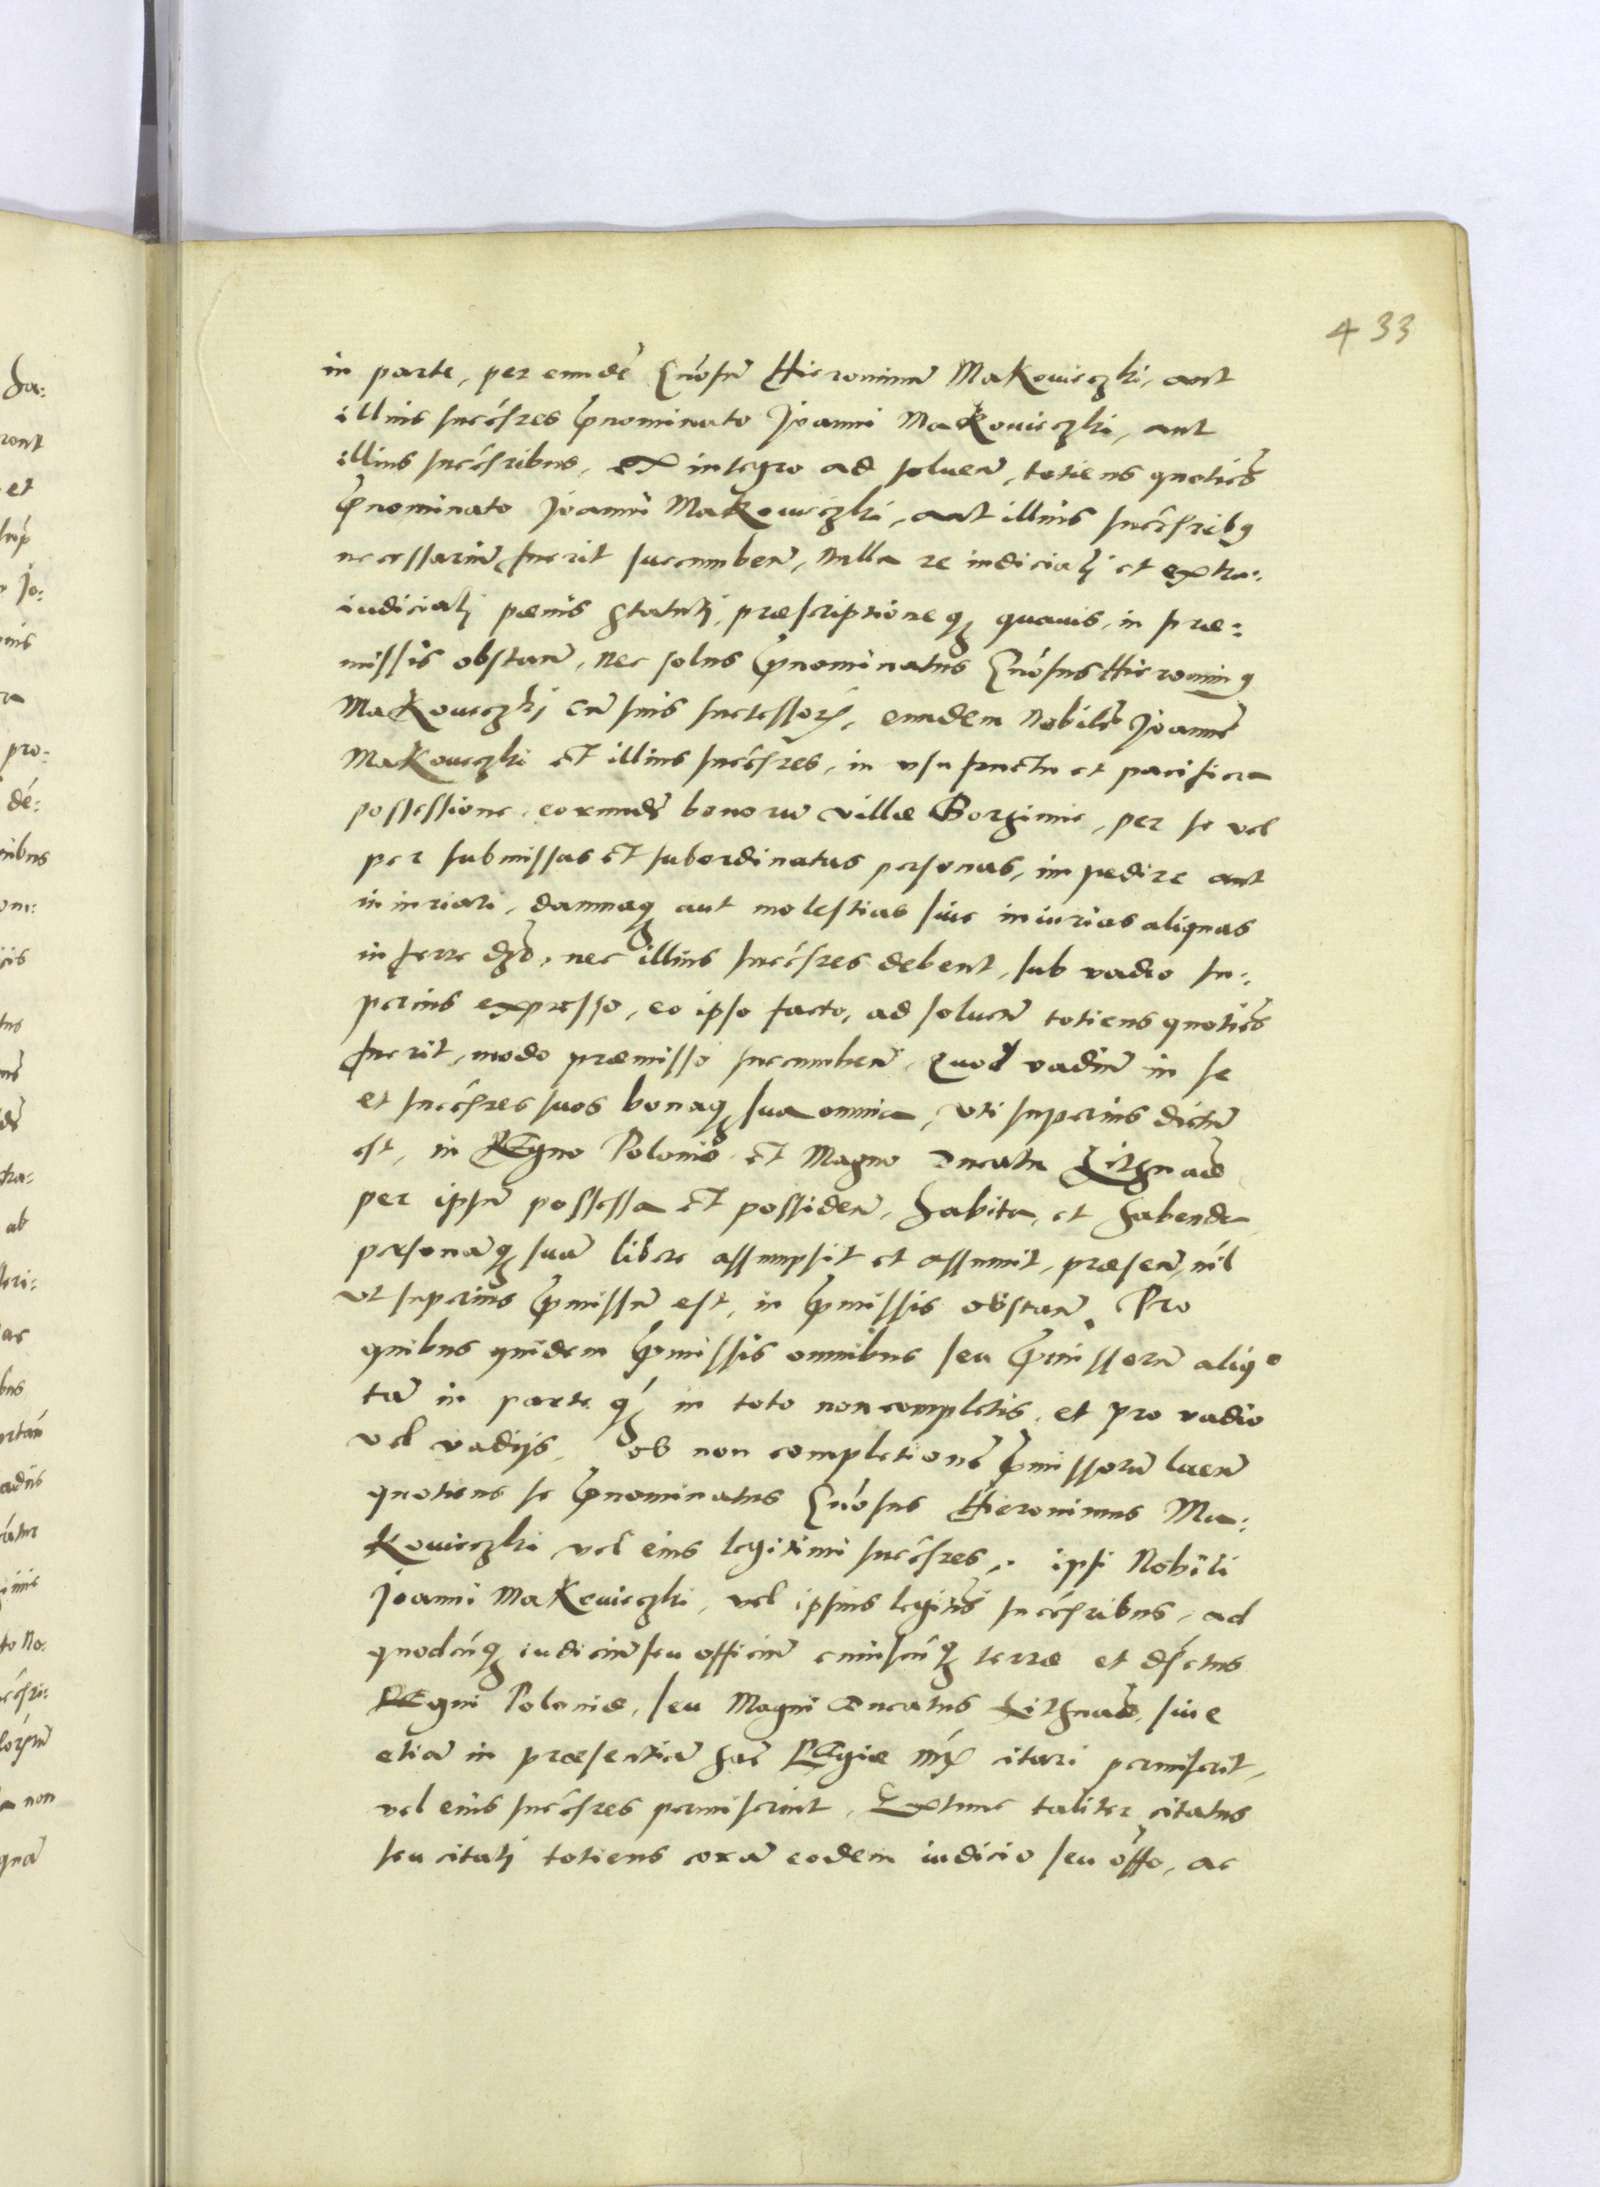 433
in parte, per eundē Gn̄osū Hieronimū Makowieczki, aut
illius succ̄sres p̄nominato Joanni Makowieczki, aut
illius succ̄sribus, ex integro ad soluen̄, totiens quotiēs
p̄nominato Joanni Makowieczki, aut illius succ̄srib9
necessariū fuerit succumben̄, nulla re iudiciali et extra:
iudiciali pænis statuti, præscriptioneq3 quauis, in præ:
missis obstan̄, nec solus p̄nominatus Gn̄osus Hieronim9
Makowieczki cū suis successorib, eundem Nobilē Joannē
Makowieczki et illius succ̄sres, in vsufructu et pacifica
possessione eorundē bonorū villæ Borzimie, per se vel
per submissas et subordinatas personas, impedire aut
iniuriari, damnaq3 aut molestias siue iniurias aliquas
inferre dz̄, nec illius succ̄sres debent, sub vadio su:
perius expresso, eo ipso facto, ad soluen̄ totiens quotiēs
fuerit, modo præmisso succumben̄. Quod vadiū in se
et succ̄sres suos bonaq3 sua omnia, vti superius dictū
est, in Regno Poloniæ et Magno Ducatu Lithuaniæ
per ipsū possessa et possiden̄, habita, et habenda
personāq3 suā libere assumpsit et assumit, præsen̄, nīl
vt superius p̄missū est, in p̄missis obstan̄. Pro
quibus quidem p̄missis omnibus seu p̄missorū aliqo
tā in parte q̄ in toto non completis, et pro vadio
vel vadijs, ob non completionē p̄missorū luen̄
quotiens se p̄nominatus Gn̄osus Hieronimus Ma:
kowieczki vel eius legitimi succ̄sres, ipsi Nobili
Joanni Makowieczki, vel ipsius legitīs succ̄sribus, ad
quodcūq3 iudiciū seu officiū cuiuscūq3 terræ et dīsctus
Regni Poloniæ, seu Magni Ducatus Lithuaniæ, siue
etiā in præsentiā sac̄ Regiæ mtis citari permiserit,
vel eius succ̄sres permiserint. Extunc taliter citatus
seu citati totiens corā eodem iudicio seu offo, ac